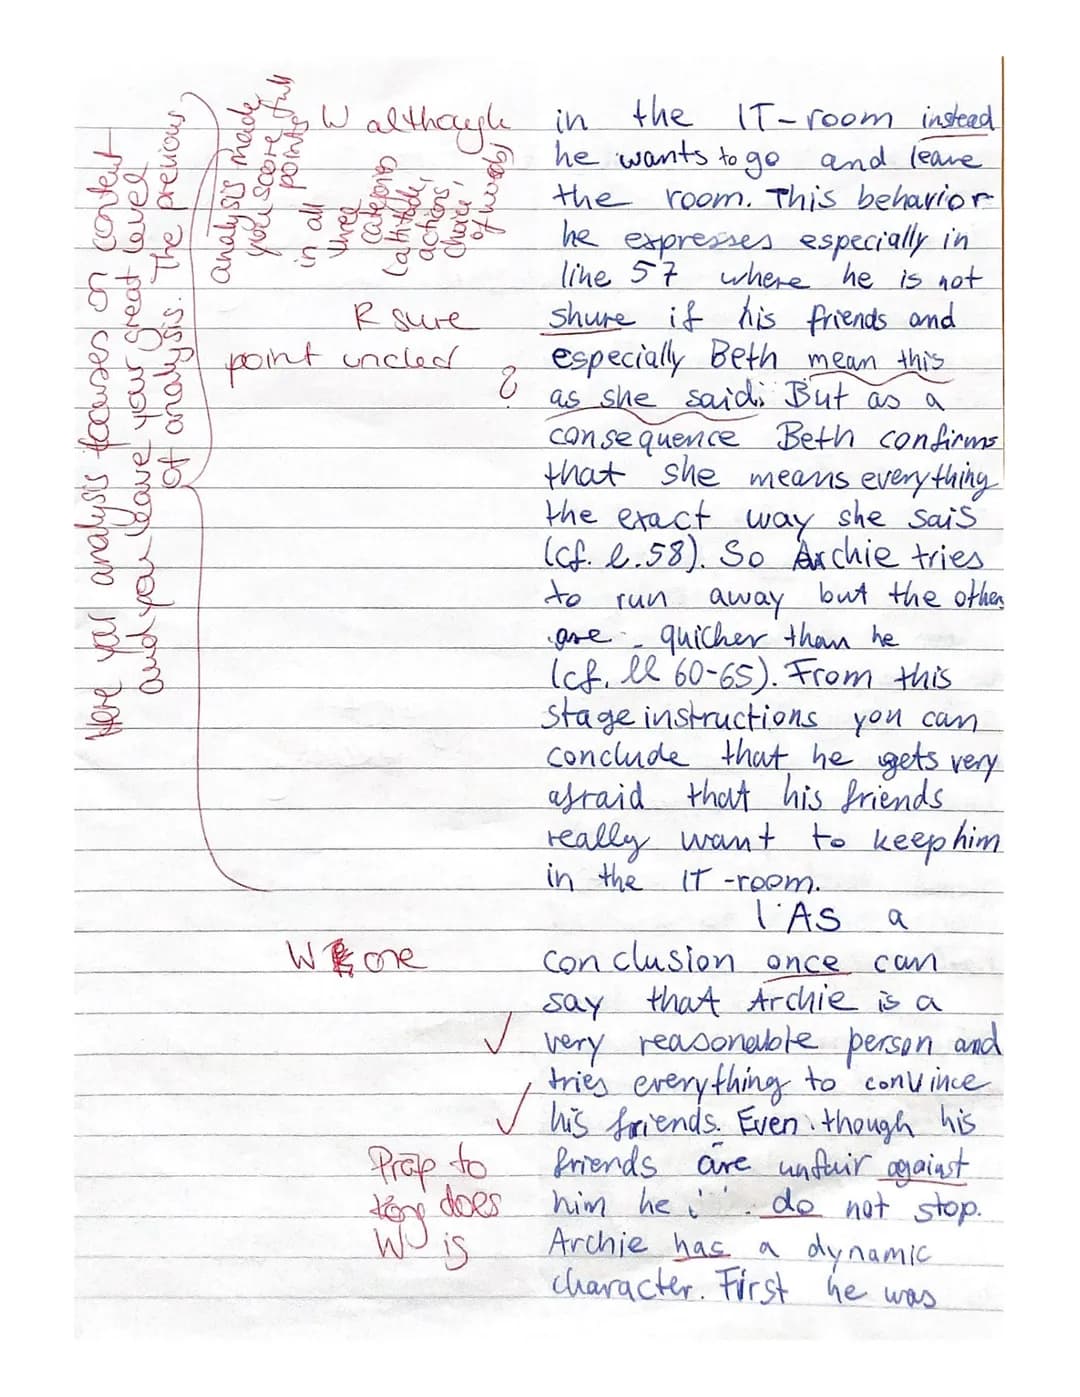 in the IT-room instead
he wants to go and leave
the room. This behavior
he expresses especially in
line 57 where he is not
shure if his friends and
especially Beth mean this
as she said. But as a
consequence Beth confirms
that she means everything
the exact way she sais
(cf. l.58). So Archie tries
to run away but the other
are quicher than he
(cf. ll 60-65). From this
stage instructions you can
conclude that he gets very
afraid that his friends
really want to keep him
in the IT-room.
As a
conclusion once can
say that Archie is a
very reasonable person and
tries everything to convince
his friends. Even though his
friends are unfair against
him he do not stop.
Archie has a dynamic
character. First he was
W although
R sure
point uncled
?
W one
Präp to
does
W is
Here your analysis focuses on content
and you leave your great level
of analysis. The previous
analysis made
you score full
points
in all
three
categories
(attitude,
actions,
choice
of words)